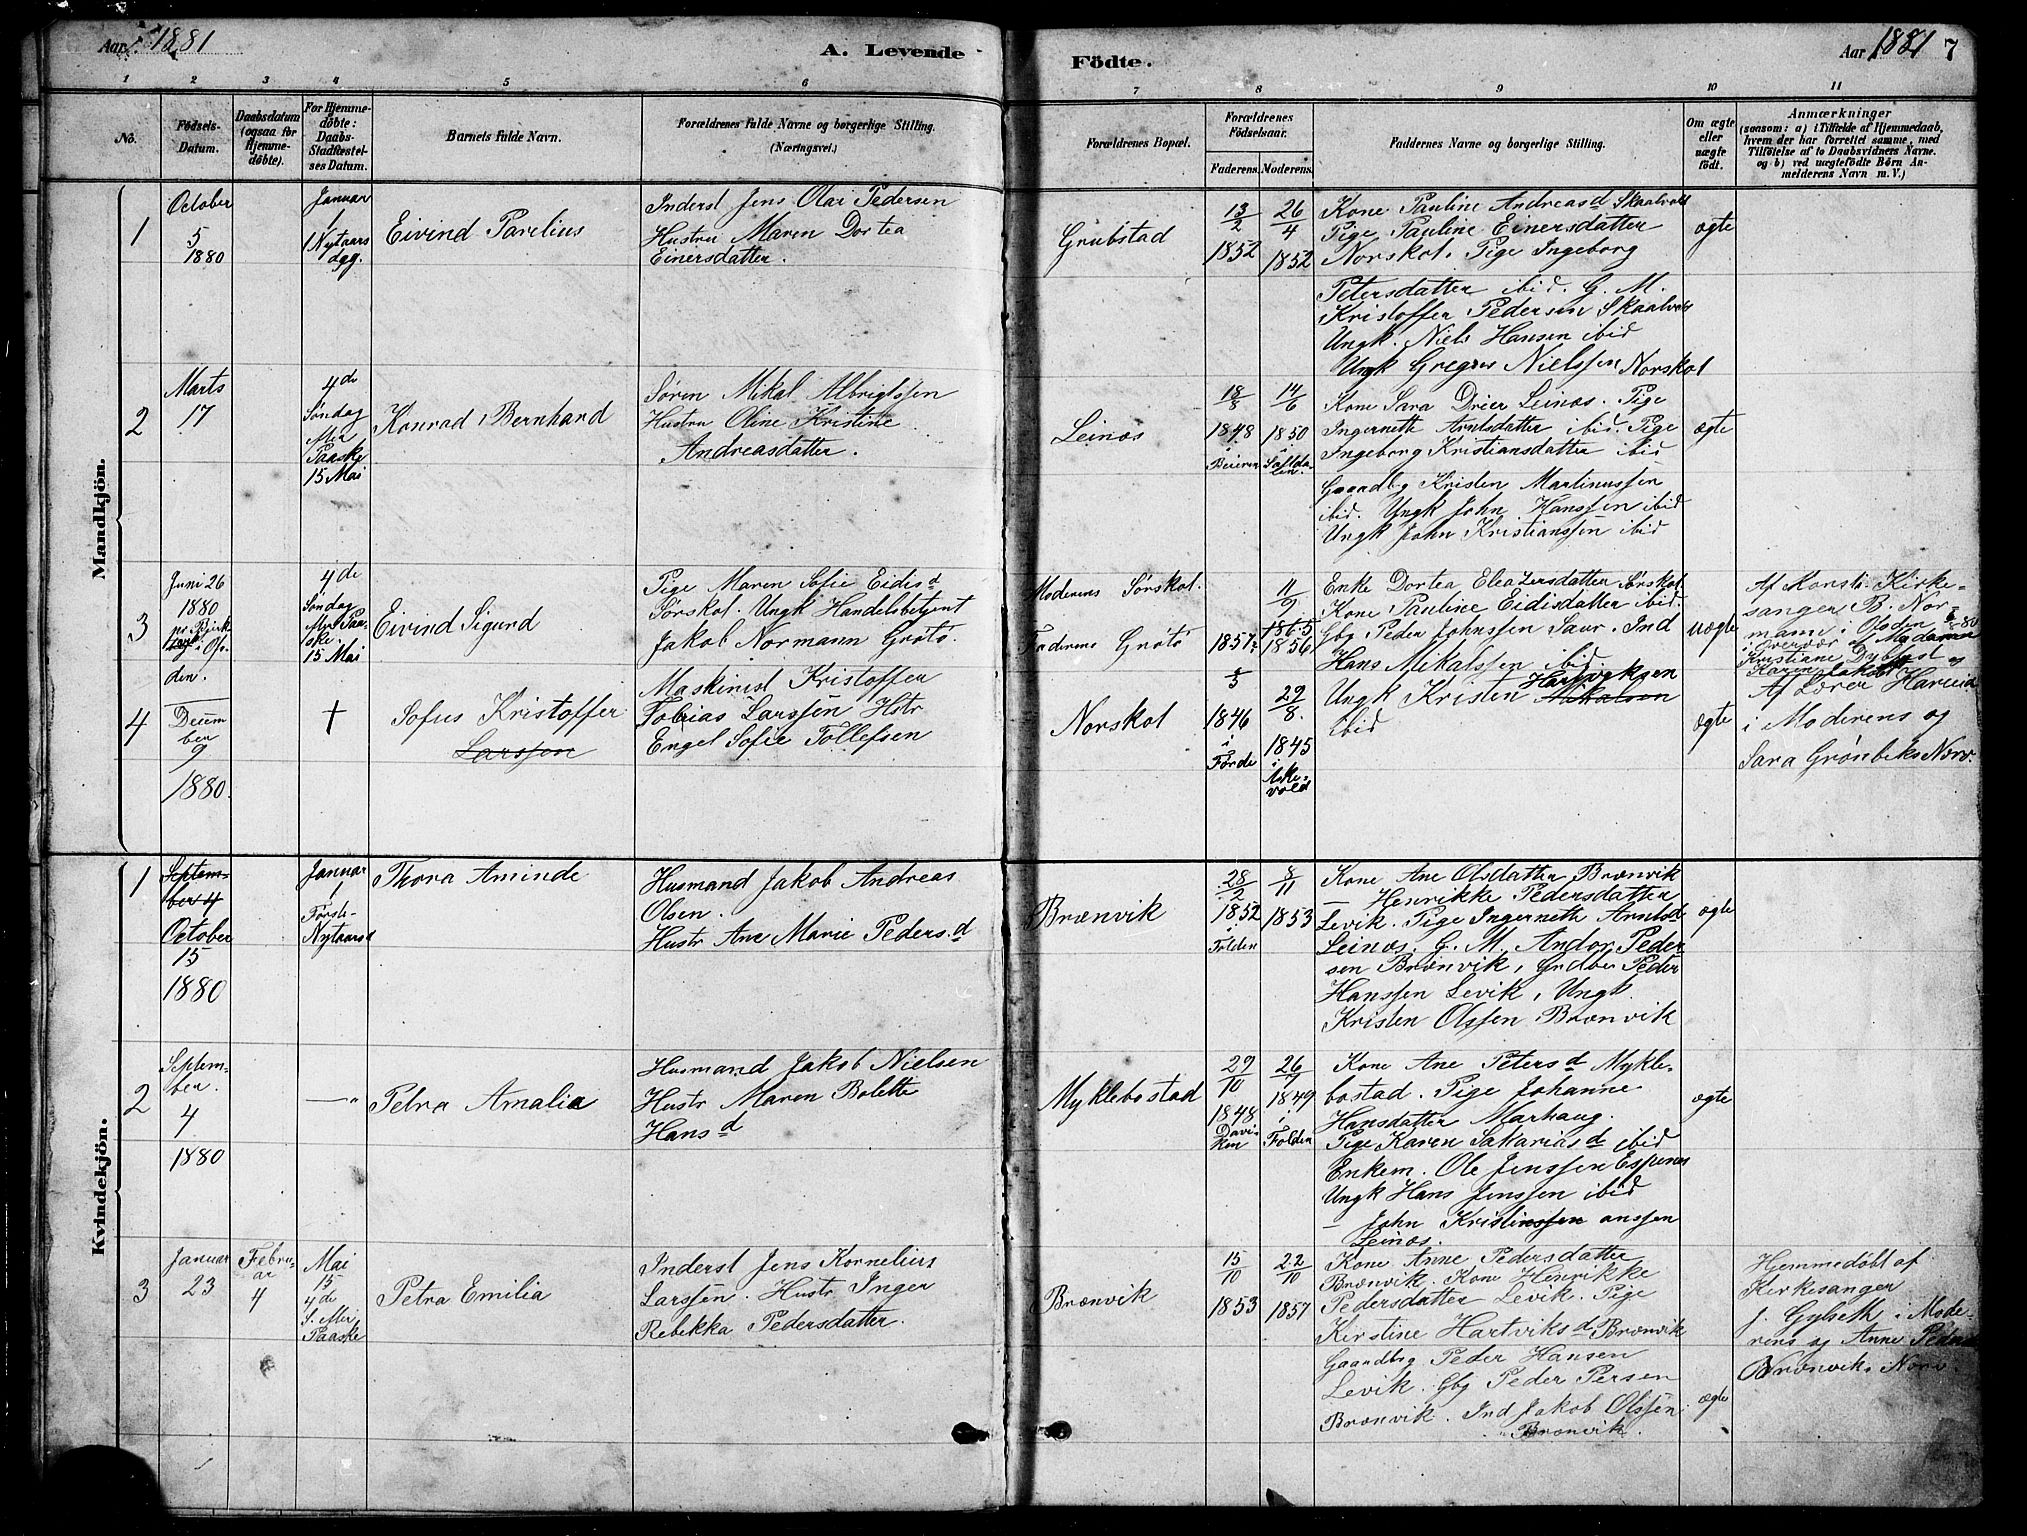 Aar 1881
A. Levende
Födte.
Aar 1881 7
1 2 3 4 5 6 7 8 9 10 11
No.
Födsels-
Datum.
Daabsdatum
(ogsaa for
Hjemme-
döbte).
For Hjemme-
döbte:
Daabs-
Stadfæstel-
ses Datum.
Barnets fulde Navn.
Forældrenes fulde Navne og borgerlige Stilling.
(Næringsvei.)
Forældrenes Bopæl.
Forældrenes
Födselsaar.
Faderens.
Moderens.
Faddernes Navne og borgerlige Stilling.
Om ægte
eller
uægte
födt.
Anmærkninger
(saasom: a) i Tilfælde af Hjemmedaab,
hvem der har forrettet samme, med
Tilföielse af to Daabsvidners Navne.
og b) ved uægtefödte Börn An-
melderens Navn m. V.)
Mandkjön.
1
October
5
1880
Januar
1
Nytaars
dag.
Eivind Parelius
Inderst Jens Olai Pedersen
Hustru Maren Dortea
Einersdatter.
Grubstad
13/2
1852
26/4
1852
Kone Pauline Andreasd Skaalvold
Pige Pauline Einersdatter
Norskot. Pige Ingeborg
Petersdatter ibid. G. M.
Kristoffer Pedersen Skaalvold
Ungk. Niels Hansen ibid
Ungk Gregers Nielssen Norskot
ægte
2
Marts
17
4de
Søndag
efter
Paaske
15 Mai
Konrad Bernhard
Søren Mikal Albrigtssen
Hustru Oline Kristine
Andreasdatter.
Leinæs
18/8
1848
i
Beieren
14/6
1850
i
Saltda-
len.
Kone Sara Dreier Leinæs. Pige
Ingerneth Arntsdatter ibid. Pige
Ingeborg Kristiansdatter ibid
Gaardbg Kristen Martinussen
ibid. Ungk John Hanssen ibid
Ungk John Kristianssen ibid
ægte
3
Juni 26
1880
den.
4de
Søndag
efter Paa-
ske.
15 Mai
Eivind Sigurd
Pige Maren Sofie Eidisd
Sørskot. Ungk Handelsbetjent
Jakob Normann Grøtø.
Moderens Sørskot.
Faderens Grøtø
1857
11/9
1856
Enke Dortea Eleazersdatter Sørskot
Kone Pauline Eidisdatter ibid.
Gbg Peder Johnssen Saur. Ind
Hans Mikalssen ibid.
Ungk Kristen Hartviksen
ibid
uægte
Af Konst. Kirke-
sanger B. Nor-
mann i Olsden
Kristiane Dybfest og
4
Decem
ber
9
1880.
†
Sofus Kristoffer
Larssen
Maskinist Kristoffer
Tobias Larssen Hstr
Engel Sofie Tollefsen
Norskot
5/3
1846
i
Førde
29/8.
1845
i
Aske-
vold
ægte
Af Lærer Harveid
i Moderens og
Sara Grønbeks Nærv.
Kvindekjön.
1
Septem-
ber 4
October
15
1880
Januar
1
Første-
Nytaarsd
Thora Aminde
Husmand Jakob Andreas
Olsen.
Hustr Ane Marie Peders.d
Brænvik
28/2
1852
i
Folden
8/11
1853
Kone Ane Olsdatter Brænvik
— Henrikke Pedersdatter
Levik. Pige Ingerneth Arntsd
Leinæs. G. M. Andor Peder
sen Brænvik, Grdbr Peder
Hanssen Levik, Ungk.
Kristen Olssen Brænvik
ægte
2
Septem-
ber.
4
1880
—"
Petra Amalia
Husmand Jakob Nielsen
Hustr Maren Bolette
Hansd
Myklebostad
29/10
1848
Davi-
ken
26/7
1849
i
Folden
Kone Ane Petersd Mykle-
bostad. Pige Johanne
Hansdatter Marhaug.
Pige Karen Sakariasd ibid
Enkem. Ole Jenssen Espenes
Ungk Hans Jenssen ibid
— John Kristinssen anssen
Leinæs.
ægte
3
Januar
23
Febru-
ar
4
Mai
15
4de
S. efter
Paaske
Petra Emilia
Inderst Jens Kornelius
Larssen. Hustr Inger
Rebekka Pedersdatter.
Brænvik
15/10
1853
22/10
1857
Kone Anne Pedersdatter
Brænvik. Kone Henrikke
Pedersdatter Levik. Pige
Kirstine Hartviksd Brænvik
Gaardbg Peder Hansen
Levik. Gbg Peder Persen
Brænvik. Ind Jakob Olssen
Brænvik.
ægte
Hjemmedøbt af
Kirkesanger
J. Gylseth i Mode-
rens og Anne Peders
Brænviks Nærv.